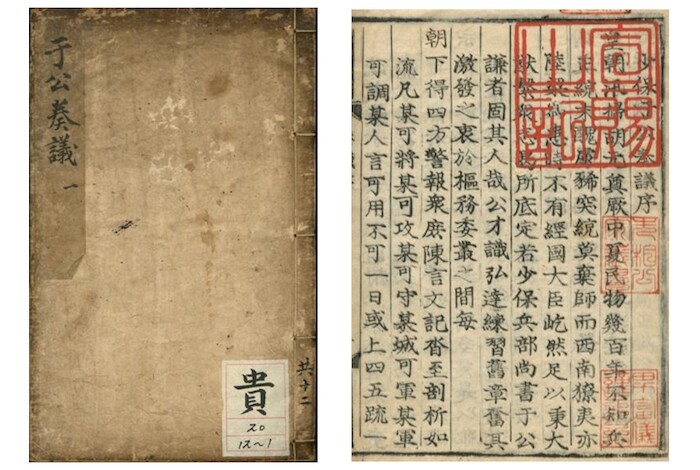 于公奏議 一
共十二
貴
宣賜之記
少保于公奏議序
皇朝汛掃胡元奠厥中夏民物幾百年不知兵
正統末醜虜豨突統莫棄師而西南獠夷亦
陸梁為患時不有經國大臣屹然足以秉大
猷繫衆志 所底定若少保兵部尚書于公
謙者固其人哉公才識弘達練習舊章奮其
激發之衷於樞務委叢之間每
朝下得四方警報衆庶陳言文記沓至剖析如
流凡某可將某可攻某可守某城可軍某軍
可調某人言可用不可一日或上四五疏一